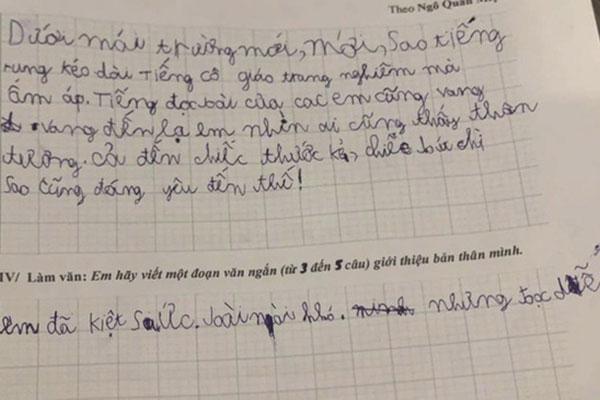 Theo Ngô Quân
Dưới mái trường mới, mới, sao tiếng
rung kéo dài Tiếng cô giáo trang nghiêm mà
ấm áp. Tiếng đọc bài của cac em cũng vang
vang đến lạ em nhìn ai cũng thấy thân
thương. Cả đến chiếc thước kẻ, chiếc bút chì
sao cũng đáng yêu đến thế!
IV/ Làm văn: Em hãy viết một đoạn văn ngắn (từ 3 đến 5 câu) giới thiệu bản thân mình.
em đã kiệt sức. bài này khó. những đọc dễ